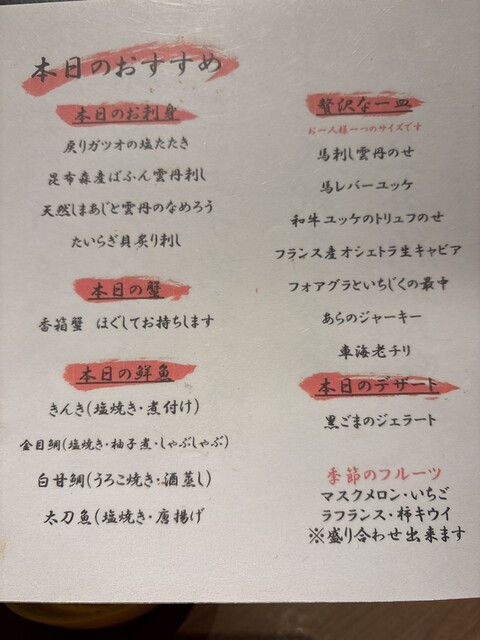 本日のおすすめ
本日のお刺身
戻りガツオの塩たたき
昆布森産ばふん雲丹刺し
天然しまあじと雲丹のなめろう
たいらぎ貝炙り刺し
本日の蟹
香箱蟹 ほぐしてお持ちします
本日の鮮魚
きんき(塩焼き・煮付け)
金目鯛(塩焼き・柚子煮・しゃぶしゃぶ)
白甘鯛(うろこ焼き・酒蒸し)
太刀魚(塩焼き・唐揚げ
贅沢な一皿
お一人様一つのサイズです
馬刺し雲丹のせ
馬レバーユッケ
和牛ユッケのトリュフのせ
フランス産オシェトラ生キャビア
フォアグラといちじくの最中
あらのジャーキー
車海老チリ
本日のデザート
黒ごまのジェラート
季節のフルーツ
マスクメロン・いちご
ラフランス・柿キウイ
※盛り合わせ出来ます